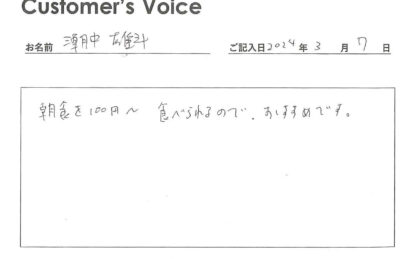 Customer's Voice
お名前 中 雄斗 ご記入日 2024 年 3 月 7 日
朝食を100円〜 食べられるので、おすすめです。